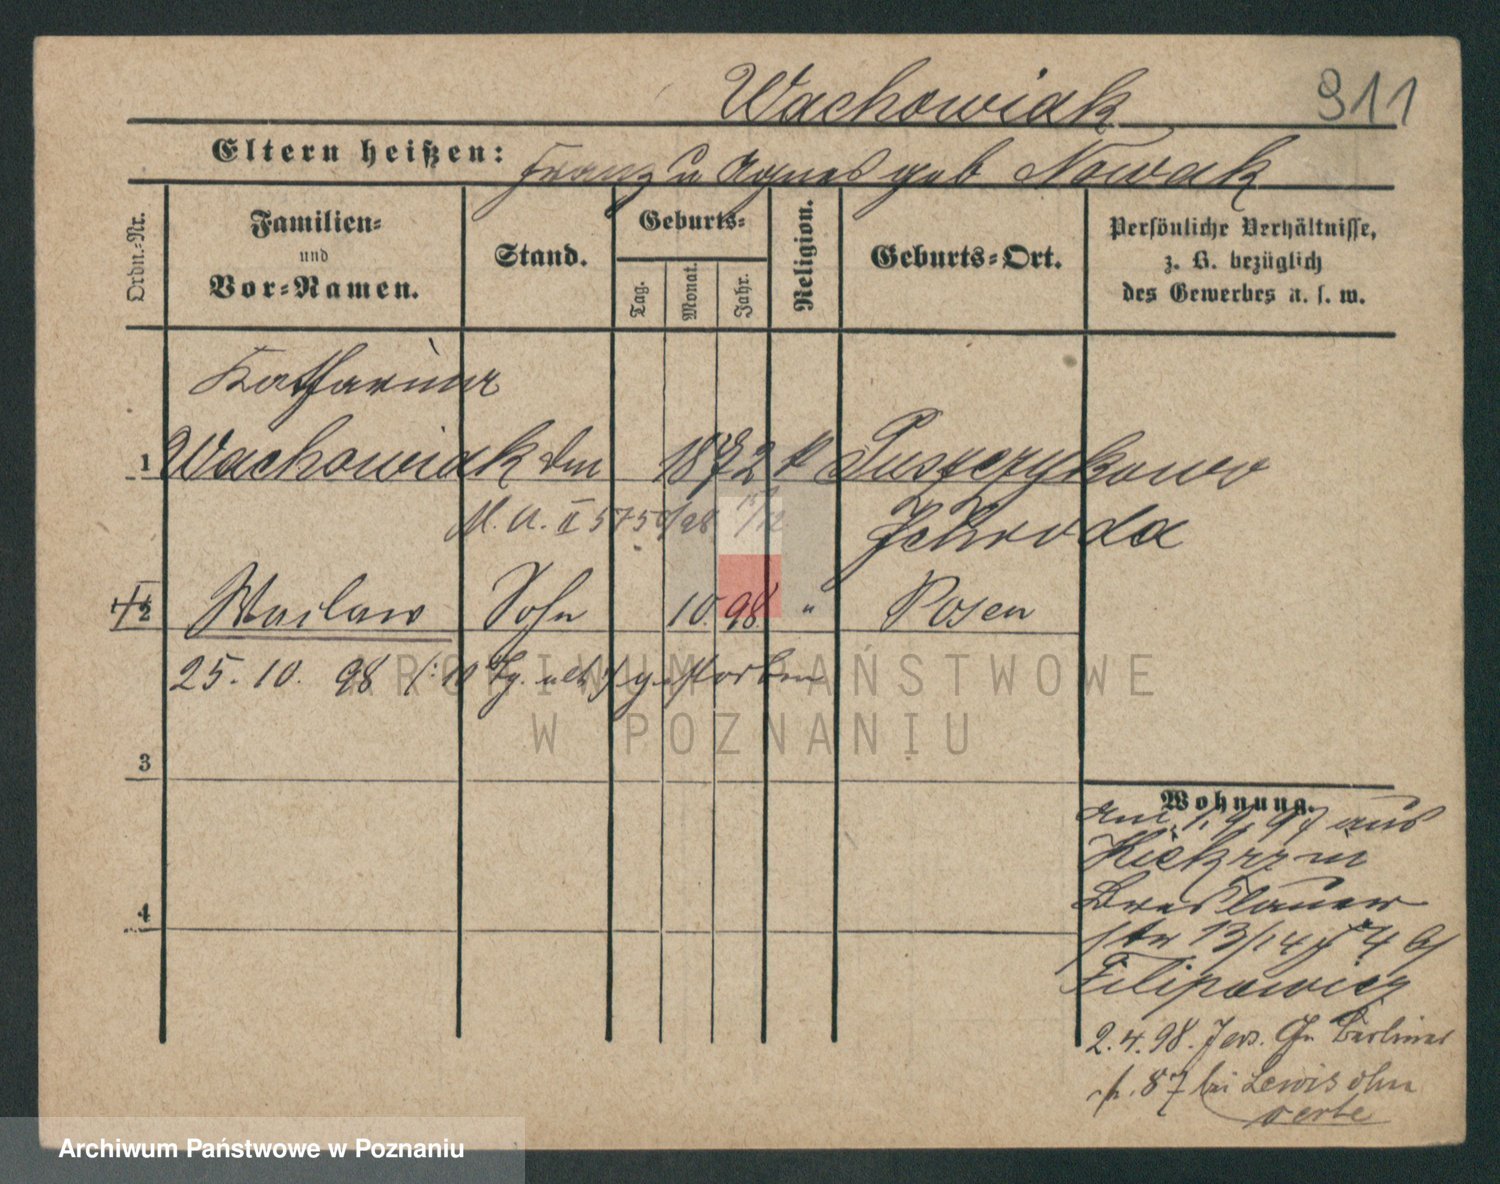 Wachowiak 911
Eltern heißen: Franz u Agnes geb Nowak
Ordn.-Nr.
Familien-
und
Vor-Namen.
Stand.
Geburts-
Tag.
Monat.
Jahr.
Religion.
Geburts-Ort.
Persönliche Verhältnisse,
z. B. bezüglich
des Gewerbes u. s. w.
Katharina
1 Wachowiak 1872 k Puszczykowo
M. A. II 575/98 15/12 Schroda
2 Waclaw Sohn 10. 98. " Posen
25. 10. 98 (: 10 Tg. alt :) gestorben
3
4
Wohnung.
am 1. 4. 97 aus
Kiekrz in
Breslauer
str 13/14
Filipowicz
2. 4. 98. Jers. Berliner
87 bei Lewisohn
ARCHIWUM PAŃSTWOWE
W POZNANIU
Archiwum Państwowe w Poznaniu